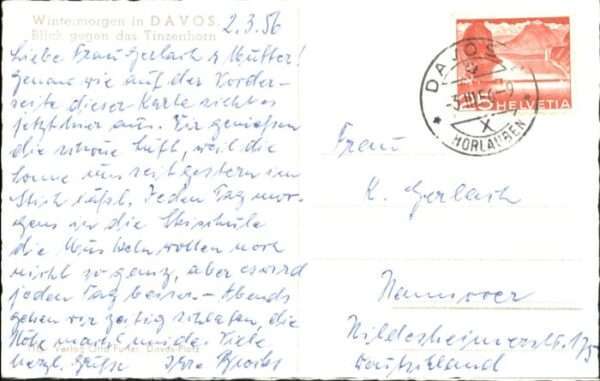 Wintermorgen in DAVOS. 2.3.56
Blick gegen das Tinzenhorn
Liebe Frau Gerlach & Mutter!
Genau wie auf der Vorder-
seite dieser Karte sieht es
jetzt hier aus. Wir genießen
die schöne Luft, weil die
Sonne uns seit gestern im
Stich läßt. Jeden Tag mor-
gens in die Skischule
die Muskeln wollen noch
nicht so ganz, aber es wird
jeden Tag besser. - Abends
gehen wir zeitig schlafen, die
Höhe macht müde. Viele
Verlag Otto Furter, Davos-Platz
herzl. Grüße Ihre
DAVOS
HORLAUBEN
X
HELVETIA
Frau
K. Gerlach
Hannover
Hildesheimerstr. 175
Deutschland